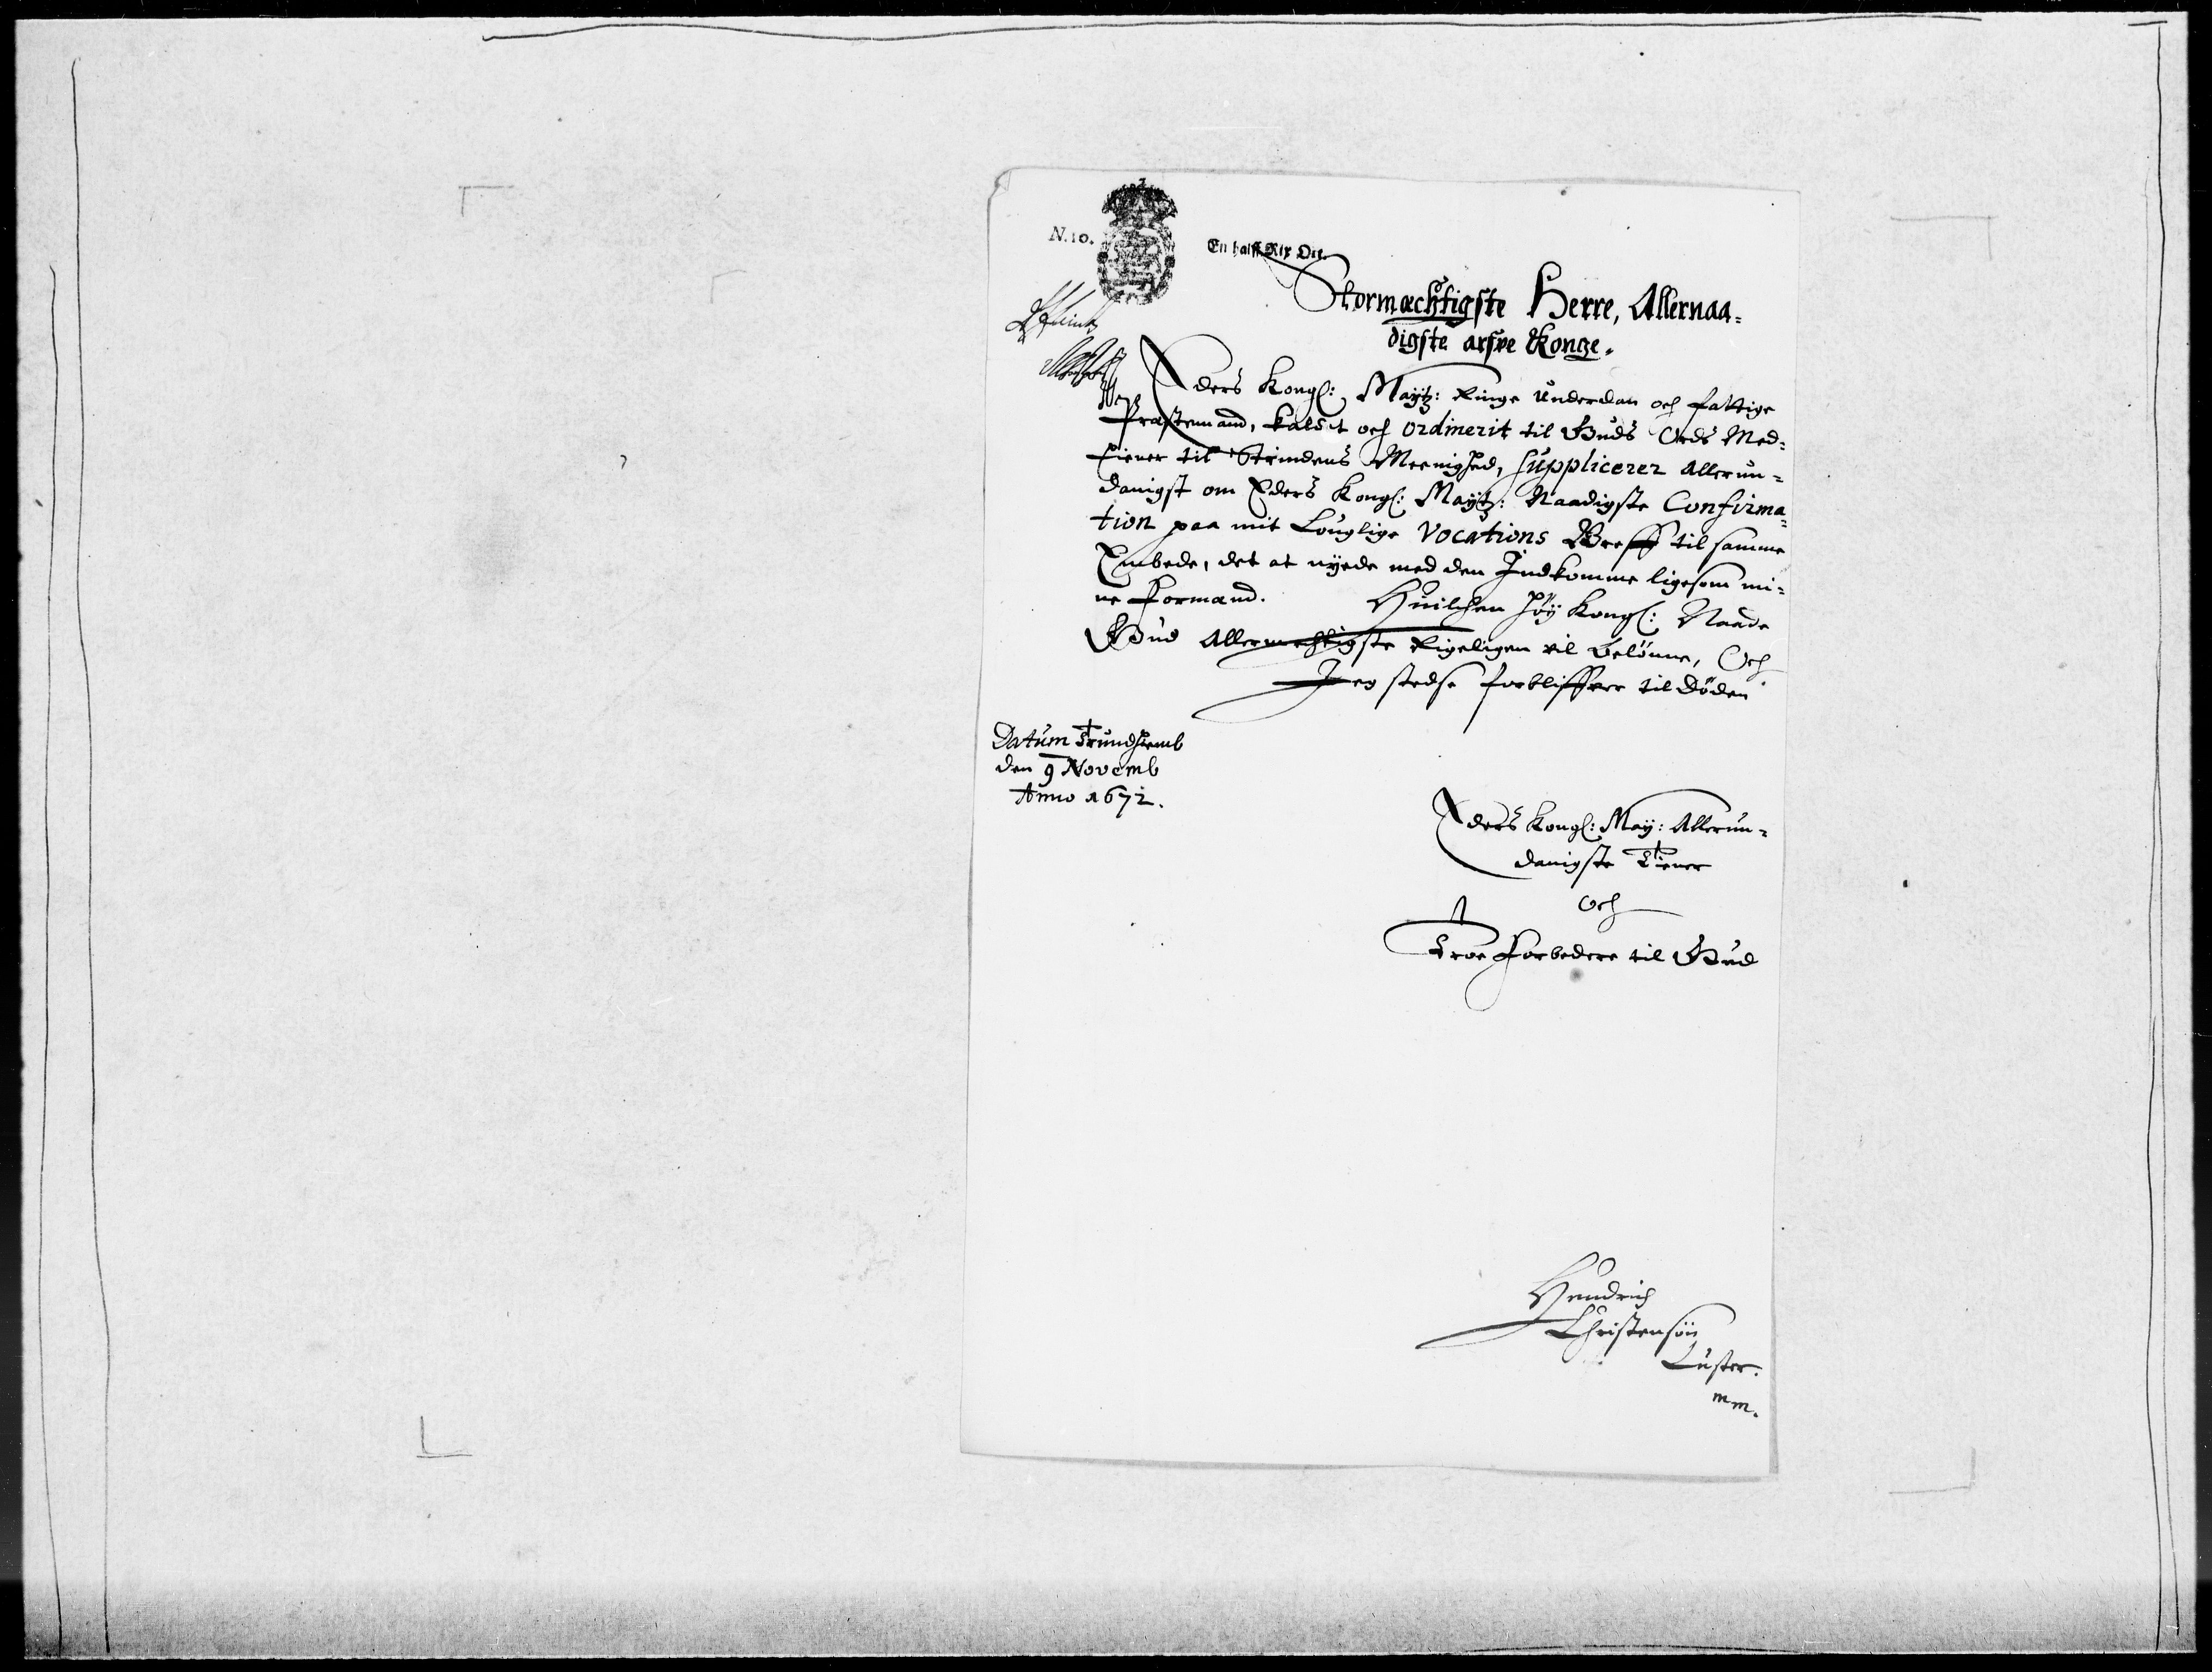 N. 10.
En halff Rix Ort.
Stormæchtigste Herre, Allernaa-
digste arfve Konge.
Eders Kongl: Maytz: Ringe Underdan och fattige
Præstemand, kaldet och ordinerit til Guds Ords Med-
tiener til Strindens Meenighed, supplicerer Allerun-
danigst om Eders Kongl: Maytz: Naadigste Confirma-
tion paa mit Louglige Vocations Breff til samme
Embede, det at nyede med den Indkomme ligesom mi-
ne Formænd. Huilchen høy Kongl: Naade
Gud Allermechtigste Rigeligen vil belönne, Och
Jeg stedse forbliffver til döden
Datum Trundhiemb
den 9 Novemb
Anno 1672.
Eders Kongl: May: Allerun-
danigste Tiener
Och
Troe Forbedere til Gud
Hendrich
Christensön
Luster.
mm.